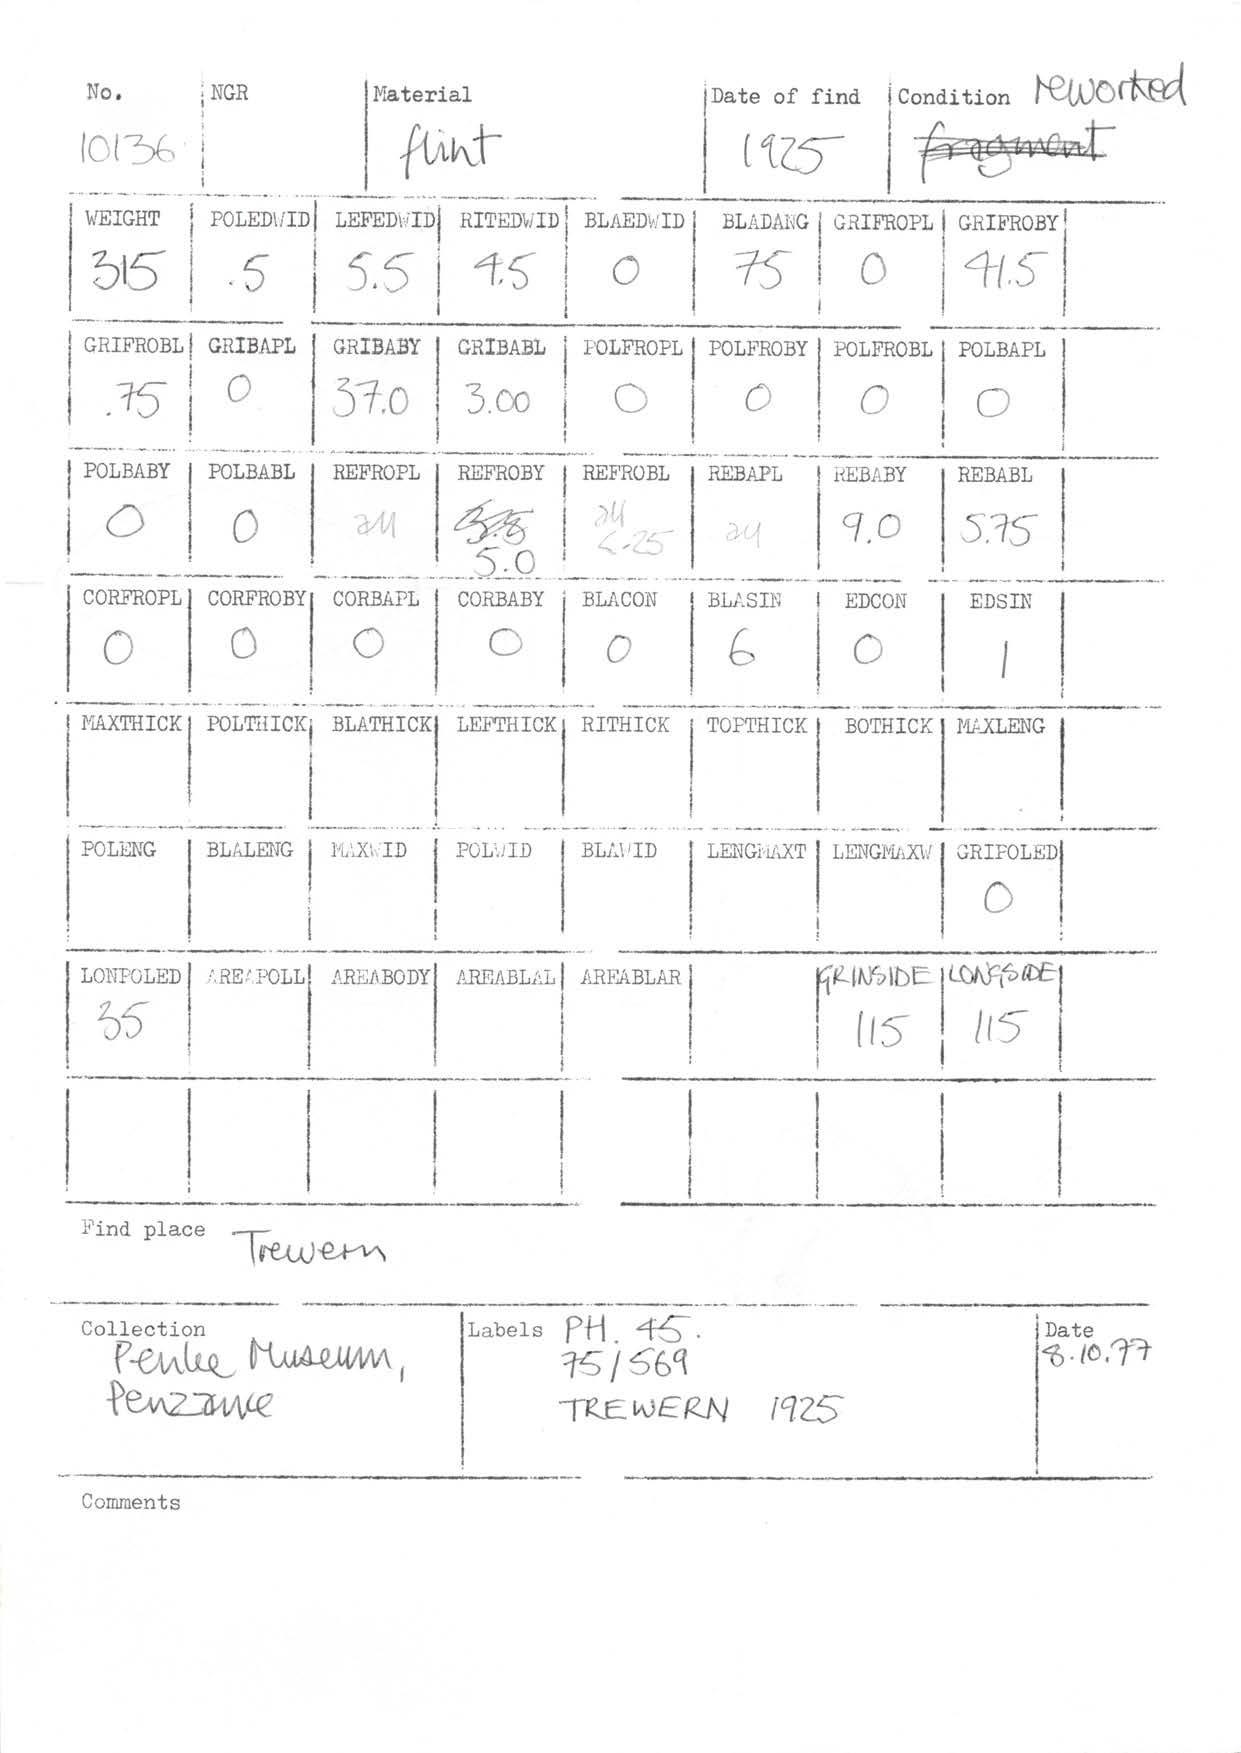 No. NGR Material Date of find Condition reworked
10136 flint 1925 fragment
WEIGHT POLEDWID LEFEDWID RITEDWID BLAEDWID BLADANG GRIFROPL GRIFROBY
315 .5 5.5 4.5 0 75 0 41.5
GRIFROBL GRIBAPL GRIBABY GRIBABL POLFROPL POLFROBY POLFROBL POLBAPL
.75 0 37.0 3.00 0 0 0 0
POLBABY POLBABL REFROPL REFROBY REFROBL REBAPL REBABY REBABL
0 0 all all all 9.0 5.75
5.0 <.25
CORFROPL CORFROBY CORBAPL CORBABY BLACON BLASIN EDCON EDSIN
0 0 0 0 0 6 0 1
MAXTHICK POLTHICK BLATHICK LEFTHICK RITHICK TOPTHICK BOTHICK MAXLENG
POLENG BLALENG MAXWID POLWID BLAWID LENGMAXT LENGMAXW GRIPOLED
0
LONPOLED AREAPOLL AREABODY AREABLAL AREABLAR GRINSIDE LONGSIDE
35 115 115
Find place Trewern
Collection Labels PH. 45. Date
Penlee Museum, 75/569 8.10.77
Penzance TREWERN 1925
Comments